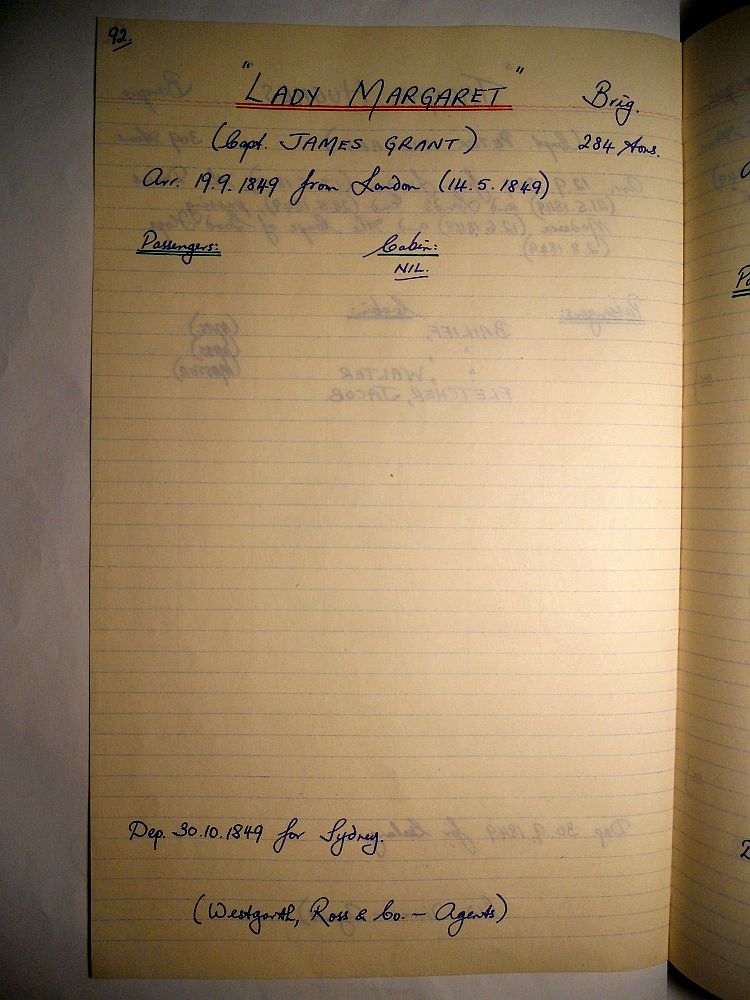 92.
"LADY MARGARET" Brig.
(Capt. JAMES GRANT) 284 tons.
Arr. 19.9.1849 from London (14.5.1849)
Passengers: Cabin:
NIL.
Dep. 30.10.1849 for Sydney.
(Westgarth, Ross & Co. — Agents)